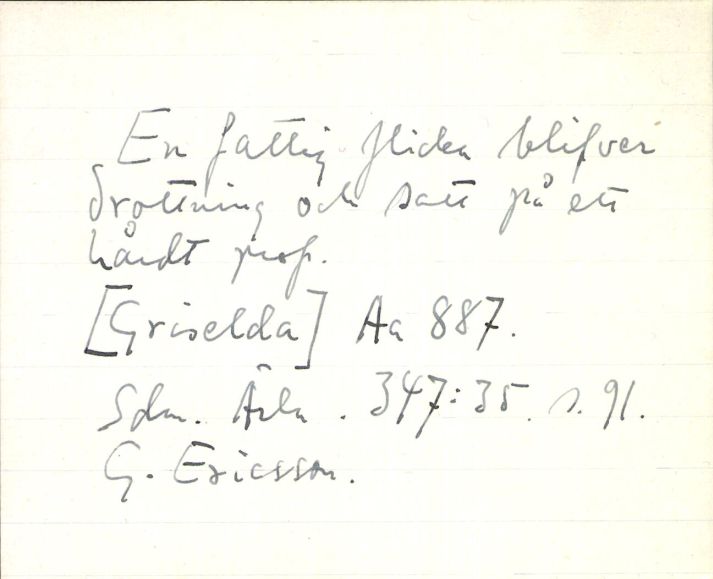 En fattig flicka blifver
drottning och satt på ett
hårdt prof.
[Griselda] Aa 887.
Sdm. Ärla. 347:35. s. 91.
G. Ericsson.